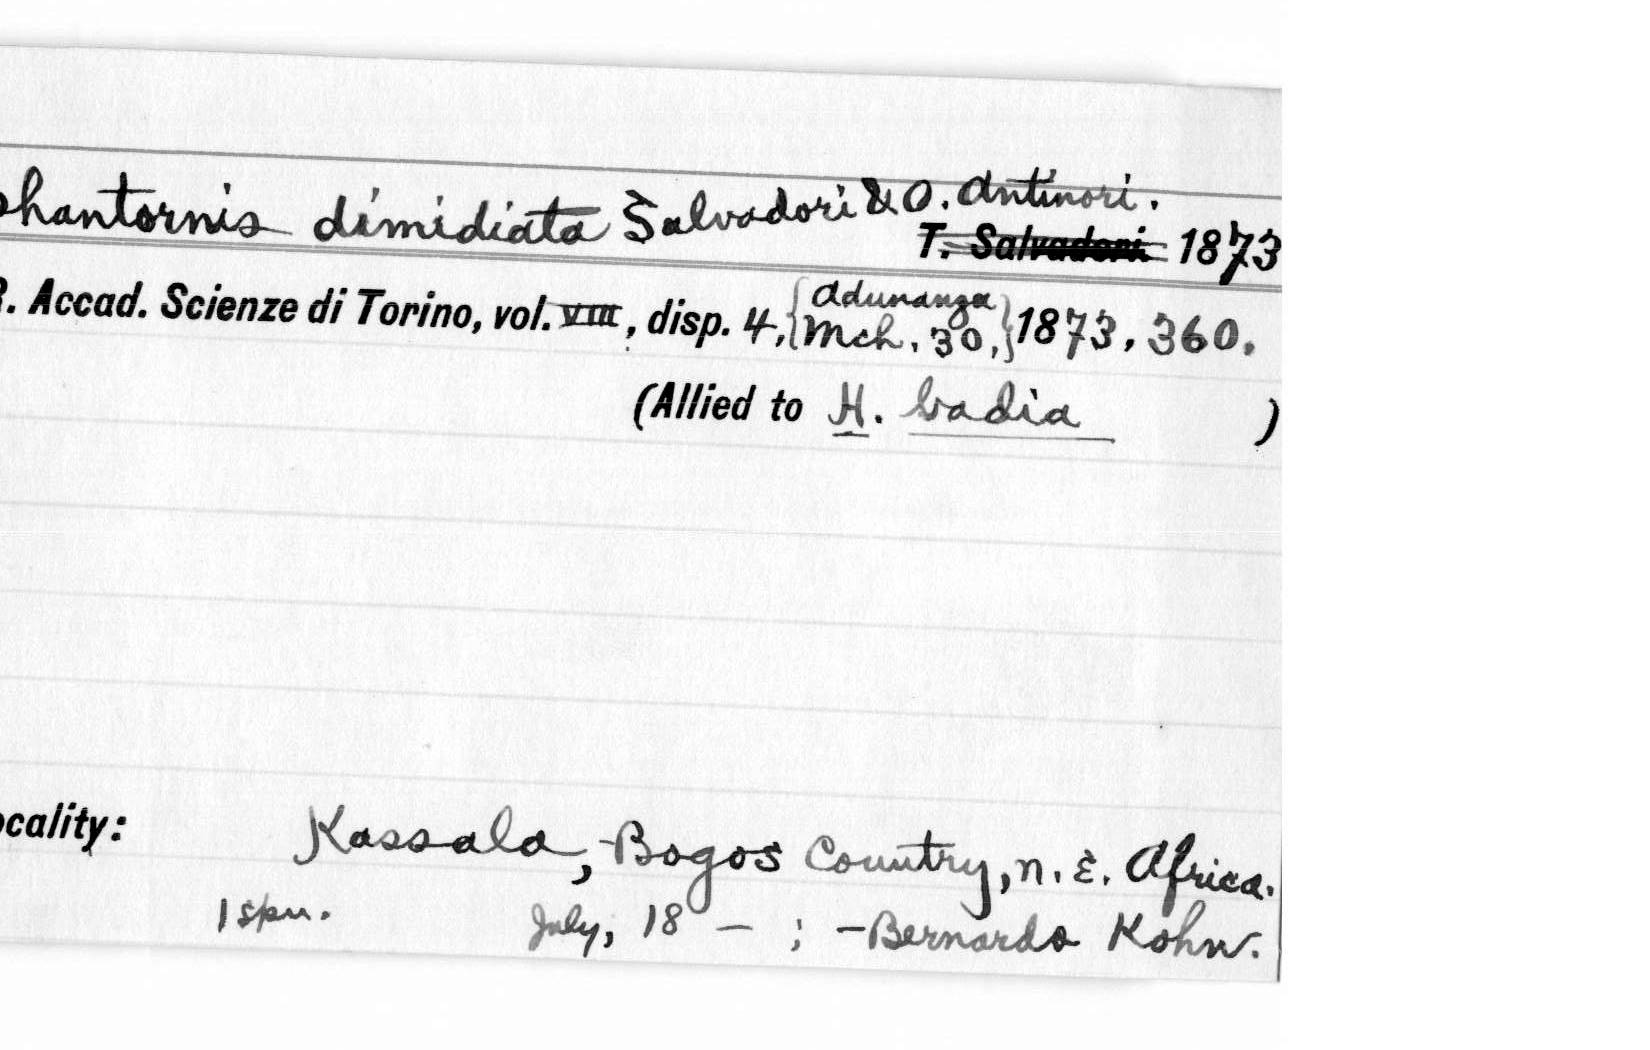 phantornis dimidiata Salvadori & O. Antinori.
T. Salvadori. 1873
R. Accad. Scienze di Torino, vol. VIII, disp. 4, {Adunanza Mch. 30,} 1873, 360.
(Allied to H. badia )
ocality: Kassala, Bogos Country, N. E. Africa.
1 spn. July, 18 — ; — Bernardo Kohn.